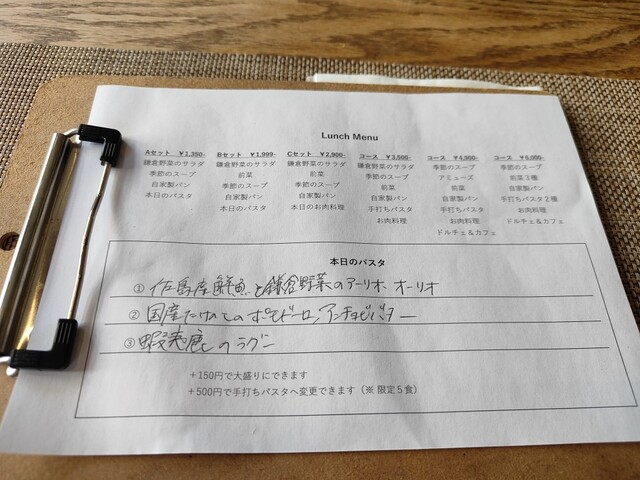 Lunch Menu
Aセット ￥1,350-
鎌倉野菜のサラダ
季節のスープ
自家製パン
本日のパスタ
Bセット ￥1,999-
鎌倉野菜のサラダ
前菜
季節のスープ
自家製パン
本日のパスタ
Cセット ￥2,900-
鎌倉野菜のサラダ
前菜
季節のスープ
自家製パン
本日のお肉料理
コース ￥3,500-
鎌倉野菜のサラダ
季節のスープ
前菜
自家製パン
手打ちパスタ
お肉料理
コース
季節のスープ
アミューズ
前菜
自家製パン
手打ちパスタ
お肉料理
ドルチェ＆カフェ
コース
季節のスープ
前菜３種
自家製パン
手打ちパスタ２種
お肉料理
ドルチェ＆カフェ
本日のパスタ
① 佐島産鮮魚と鎌倉野菜のアーリオ オーリオ
② 国産たけのこのポモドーロ アンチョビバター
③ 蝦夷鹿のラグー
＋150円で大盛りにできます
＋500円で手打ちパスタへ変更できます（※ 限定５食）